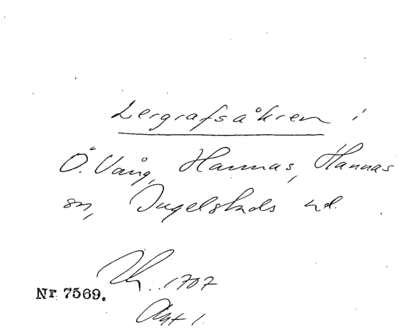 Lergrafsåkren i
Ö. Vång, Hannas, Hannas
sn, Ingelstads hd.
1707
Nr 7569.
Akt 1.